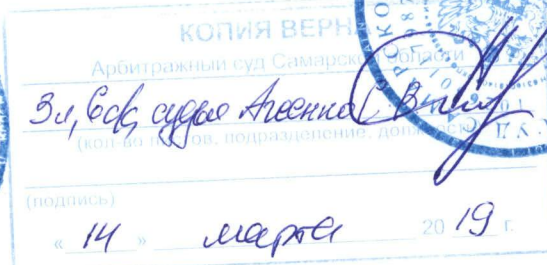 КОПИЯ ВЕРНА
Арбитражный суд Самарской области
3 л, судья Агеенко
(кол-во листов, подразделение, должность)
(подпись)
« 14 » марта 20 19 г.